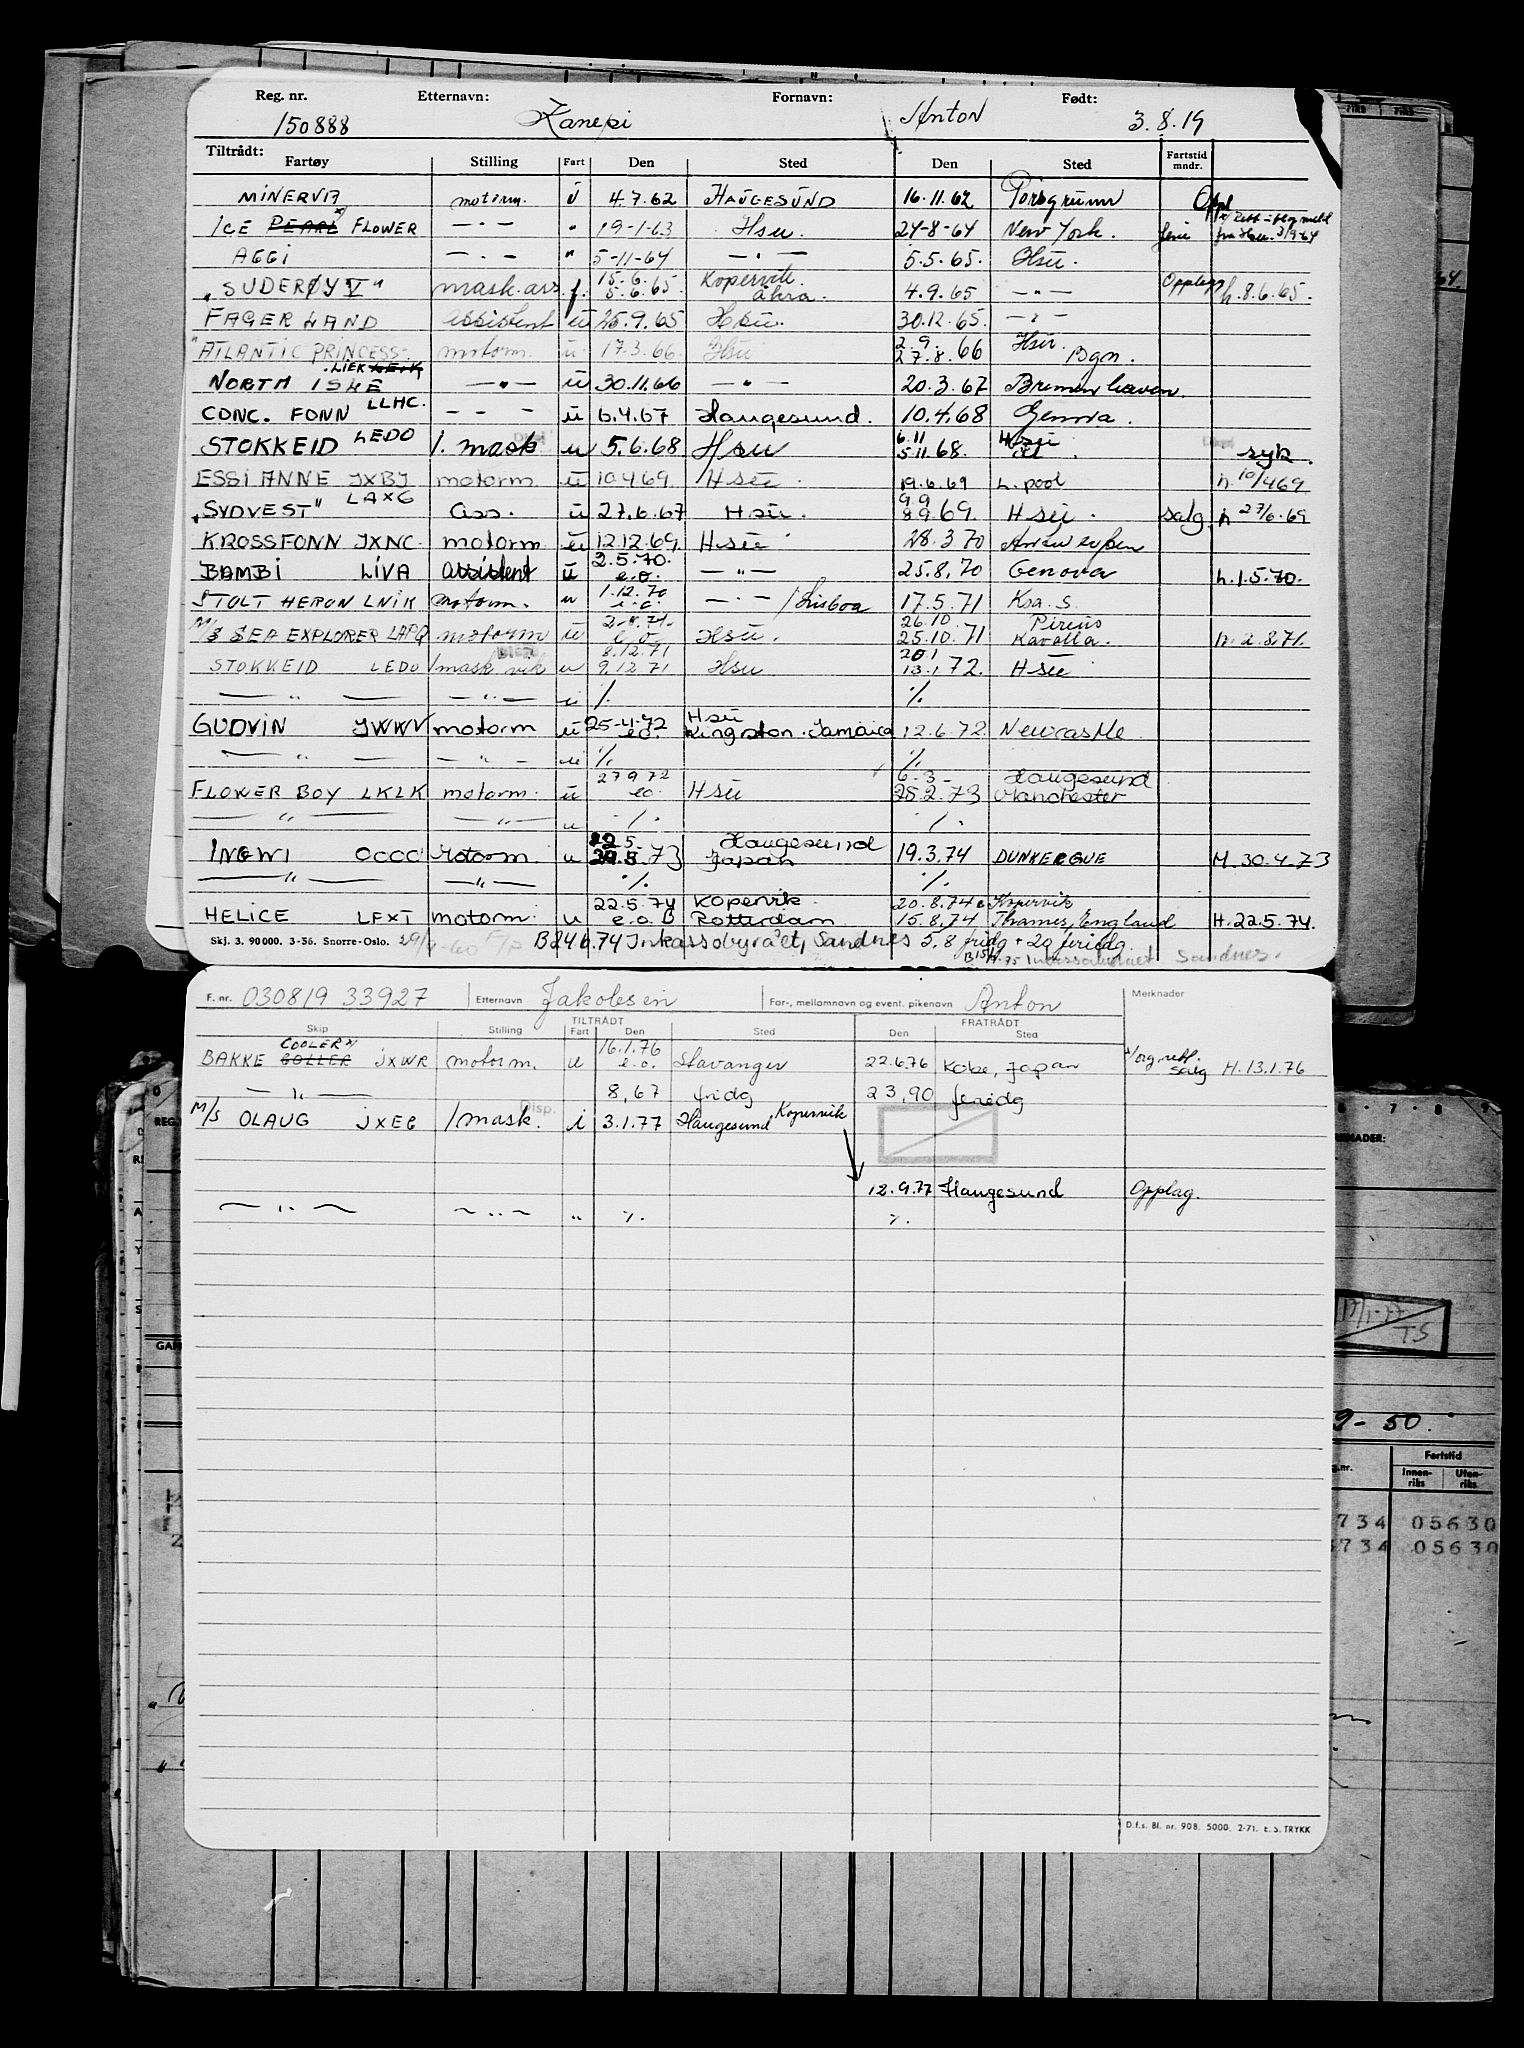 Reg. nr. Etternavn: Fornavn: Født:
150888 Kanepi Anton 3.8.19
Tiltrådt:
Fartøy Stilling Fart Den Sted Den Sted Fartstid mndr.
MINERVA motorm. ü 4.7.62 HAUGESUND 16.11.62 Porsgrunn Oppl
ICE PEARL FLOWER — · — " 19-1-63 Hsu. 24-8-64 New York. ferie
fra Hsu. 3/9-64
AGGI — · — " 5-11-64 — " — 5.5.65. Hsü.
"SUDERØY V" mask.ass. f. 15.6. 5.6.65. Kopervik. Åkra. 4.9.65 — " — Opplagt h.8.6.65.
FAGERLAND Assistent ü 25.9.65 Hsü. 30.12.65. — " —
"ATLANTIC PRINCESS motorm. u 17.3.66. Hsü 2.9. 27.8.66 Hsü. Bgn.
NORTH ISLE LIEK — " — ü 30.11.66 — " — 20.3.67 Bremerhaven.
CONC. FONN LLHC. — — — ü 6.4.67 Haugesund. 10.4.68 Genova.
STOKKEID LEDO 1. mask u 5.6.68 Hsu 6.11 5.11.68. Hsü syk.
ESSI ANNE JXBJ motorm. ü 10.4.69. Hsü. 19.6.69 L.pool h. 10/4 69
"SYDVEST" LAXG Ass. ü 27.6.67 Hsü. 9.9 8.9.69. Hsü. salg. h 27/6.69
KROSSFONN JXNC. motorm. ü 12.12.69. Hsü 28.3.70 Antwerpen
BAMBI LIVA assistent ü 2.5.70. e.o. — " — 25.8.70 Genova h.1.5.70.
STOLT HERON LNIK motorm. u 1.12.70 e.o. — · — / Lisboa 17.5.71 Ksa. S.
M/S SEA EXPLORER LAPQ motorm ü 2.8.71. e.o. Hsü. 26.10. 25.10.71 Pireus Kavalla. h.2.8.71.
STOKKEID LEDO 1mask vik u 8.12.71 9.12.71 Hsu 20.1 13.1.72. Hsü
— " — — " — u ⁒ ⁒
GUDVIN JWWV motorm ü 25-4-72 eo Hsü Kingston. Jamaica 12.6.72 Newcastle.
— " — — " — u ⁒ ⁒
FLOWER BOY LKLK motorm. ü 27972 eo. Hsü 6-3- 25.2.73 Haugesund Manchester
— " — — " — u ⁒ ⁒
INGWI OCOC Motorm. u 22.5. 73 Haugesund Japan 19.3.74 DUNKERQUE H.30.4.73
— " — — " — ⁒ ⁒
HELICE LFXT motorm. u 22.5.74 e.o. B Kopervik Rotterdam 20.8.74 15.8.74 Kopervik Thames, England H.22.5.74.
Skj. 3. 90000. 3-56. Snorre-Oslo. B24.6.74 Inkassobyrået, Sandnes 5,8 fridg + 20 feriedg.
Sandnes.
F. nr. 030819 33927 Etternavn Jakobsen For-, mellomnavn og event. pikenavn Anton Merknader
TILTRÅDT FRATRÅDT
Skip Stilling Fart Den Sted Den Sted
BAKKE COOLER x) COLLER JXWR motorm. u 16.1.76 e.o. Stavanger 22.6.76 Kobe, Japan x/org rett. salg H.13.1.76
— " — 8,67 fridg 23,90 feriedg
M/S OLAUG JXEG 1mask. Disp. i 3.1.77 Haugesund Kopervik
12.9.77 Haugesund Opplag.
— " — — " — " ⁒ ⁒
D.f.s. Bl. nr. 908. 5000. 2-71. E.S. TRYKK
17/1-77
TS
9-50.
Fartstid
Innen-riks Uten-riks
734 05630
734 05630